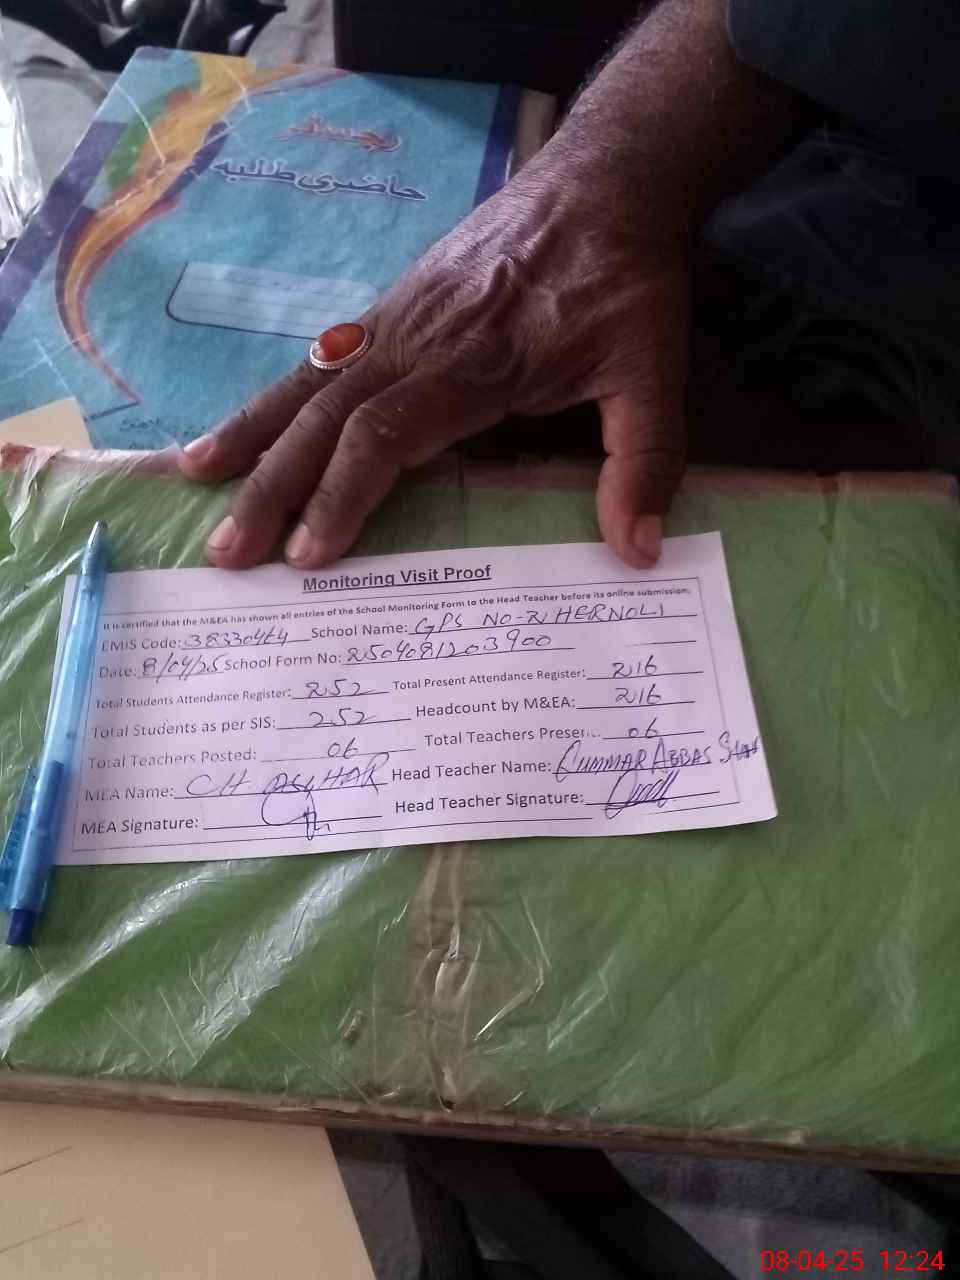 رجسٹر
حاضری طلبہ
Monitoring Visit Proof
It is certified that the M&EA has shown all entries of the School Monitoring Form to the Head Teacher before its online submission.
EMIS Code: 38330464 School Name: GPS NO-2 HERNOLI
Date: 8/04/25 School Form No: 2504081203900
Total Students Attendance Register: 252 Total Present Attendance Register: 216
Total Students as per SIS: 252 Headcount by M&EA: 216
Total Teachers Posted: 06 Total Teachers Presen... 06
MEA Name: CH. ASGHAR Head Teacher Name: QUMMAR ABBAS
MEA Signature: Head Teacher Signature:
08-04-25 12:24